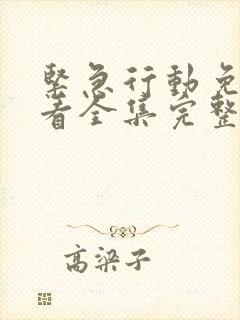 緊急行動免
看全集完整
高梁子